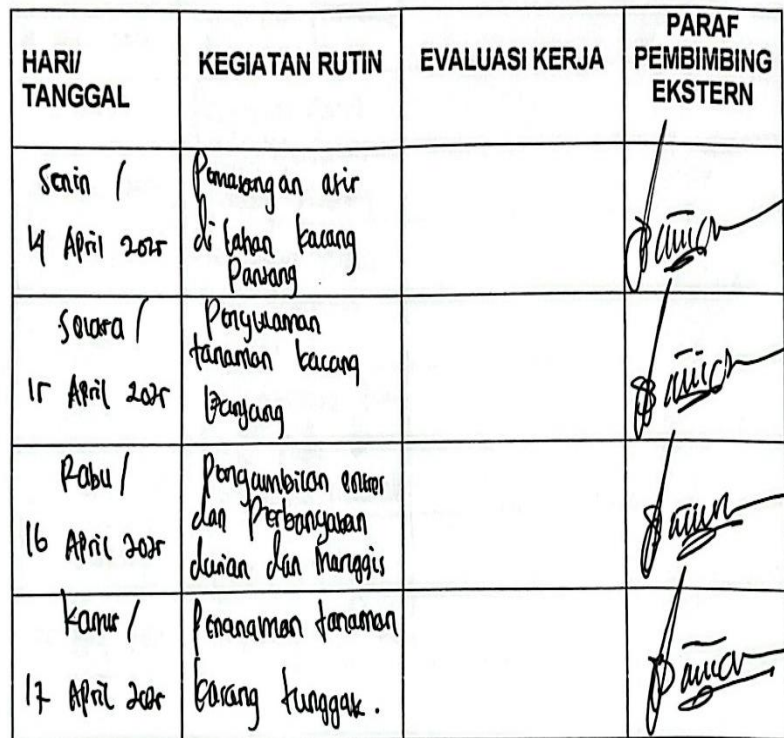 HARI/
TANGGAL
KEGIATAN RUTIN
EVALUASI KERJA
PARAF
PEMBIMBING
EKSTERN
Senin /
14 April 2025
Pemasangan ajir
di lahan kacang
Panjang
Selasa /
15 April 2025
Penyulaman
tanaman kacang
Panjang
Rabu /
16 April 2025
Pengambilan entres
dan Perbanyakan
durian dan manggis
Kamis /
17 April 2025
Penanaman tanaman
kacang tunggak.